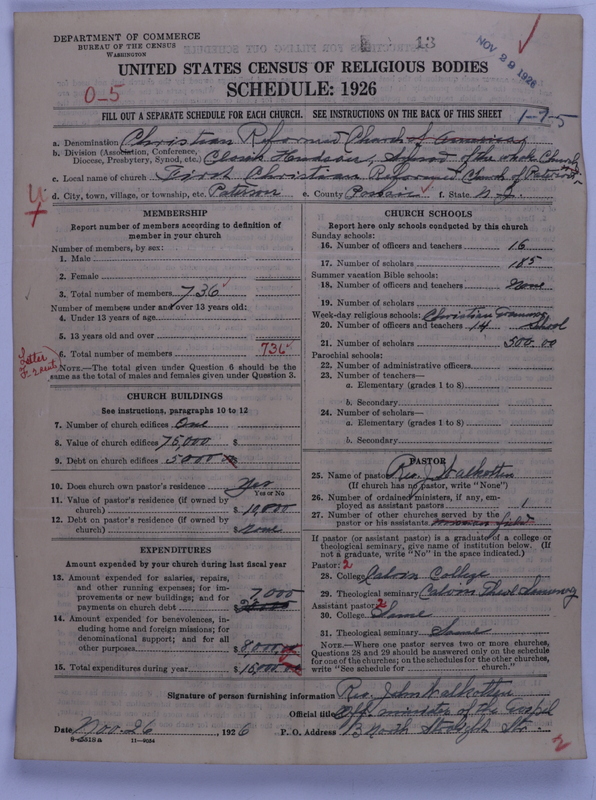 DEPARTMENT OF COMMERCE
BUREAU OF THE CENSUS
WASHINGTON
13
NOV 29 1926
UNITED STATES CENSUS OF RELIGIOUS BODIES
SCHEDULE: 1926
0-5
FILL OUT A SEPARATE SCHEDULE FOR EACH CHURCH. SEE INSTRUCTIONS ON THE BACK OF THIS SHEET
1-7-5
a. Denomination Christian Reformed Church of America
b. Division (Association, Conference, Diocese, Presbytery, Synod, etc.) Classis Hudson, Synod of the whole Church
c. Local name of church First Christian Reformed Church of Paterson
d. City, town, village, or township, etc. Paterson e. County Passaic f. State N. J.
MEMBERSHIP
Report number of members according to definition of
member in your church
Number of members, by sex:
1. Male
2. Female
3. Total number of members 736
Number of members under and over 13 years old:
4. Under 13 years of age
5. 13 years old and over
6. Total number of members 736
Letter
NOTE.—The total given under Question 6 should be the
same as the total of males and females given under Question 3.
CHURCH BUILDINGS
See instructions, paragraphs 10 to 12
7. Number of church edifices One
8. Value of church edifices 75,000 $
9. Debt on church edifices 5000 $
10. Does church own pastor's residence Yes
Yes or No
11. Value of pastor's residence (if owned by
church) $ 10,000
12. Debt on pastor's residence (if owned by
church) $ None
EXPENDITURES
Amount expended by your church during last fiscal year
13. Amount expended for salaries, repairs,
and other running expenses; for im-
provements or new buildings; and for
payments on church debt $ 7,000
14. Amount expended for benevolences, in-
cluding home and foreign missions; for
denominational support; and for all
other purposes $ 8,000.00
15. Total expenditures during year $ 15,000.00
CHURCH SCHOOLS
Report here only schools conducted by this church
Sunday schools:
16. Number of officers and teachers 16
17. Number of scholars 185
Summer vacation Bible schools:
18. Number of officers and teachers None
19. Number of scholars
Week-day religious schools: Christian
20. Number of officers and teachers 14 School
21. Number of scholars 500.00
Parochial schools:
22. Number of administrative officers
23. Number of teachers—
a. Elementary (grades 1 to 8)
b. Secondary
24. Number of scholars—
a. Elementary (grades 1 to 8)
b. Secondary
PASTOR
25. Name of pastor Rev. J. Walkotten
(If church has no pastor, write "None")
26. Number of ordained ministers, if any, em-
ployed as assistant pastors 1
27. Number of other churches served by the
pastor or his assistants
If pastor (or assistant pastor) is a graduate of a college or
theological seminary, give name of institution below. (If
not a graduate, write "No" in the space indicated.)
Pastor: 2
28. College Calvin College
29. Theological seminary Calvin Theol Seminary
Assistant pastor: 2
30. College Same
31. Theological seminary Same
NOTE.—Where one pastor serves two or more churches,
Questions 28 and 29 should be answered only on the schedule
for one of the churches; on the schedules for the other churches,
write "See schedule for church."
Signature of person furnishing information Rev. John Walkotten
Official title minister of the Gospel
Date Nov. 26, 1926 P. O. Address
11—9034
2